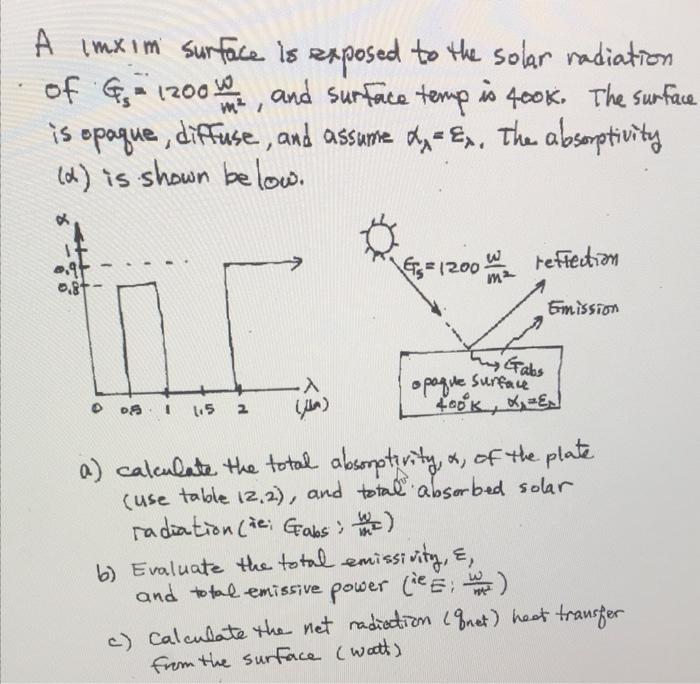 A 1mx1m surface is exposed to the solar radiation
of Gs = 1200 w/m², and surface temp is 400K. The surface
is opaque, diffuse, and assume αλ = ελ. The absorptivity
(α) is shown below.
α
1
0.9
0.8
0 0.5 1 1.5 2 λ (μm)
Gs = 1200 w/m² reflection
Emission
Gabs
opaque surface
400°K, αλ=ελ
a) calculate the total absorptivity, α, of the plate
(use table 12.2), and total absorbed solar
radiation (ie; Gabs; w/m²)
b) Evaluate the total emissivity, ε,
and total emissive power (ie E; w/m²)
c) Calculate the net radiation (qnet) heat transfer
from the surface (watt)